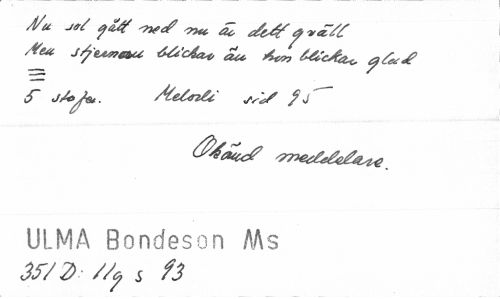 Nu sol gått ned nu är dett qväll
Men stjernan blickar än hon blickar glad
5 strofer. Melodi sid 95
Okänd meddelare.
ULMA Bondeson Ms
351 D: 11g s 93